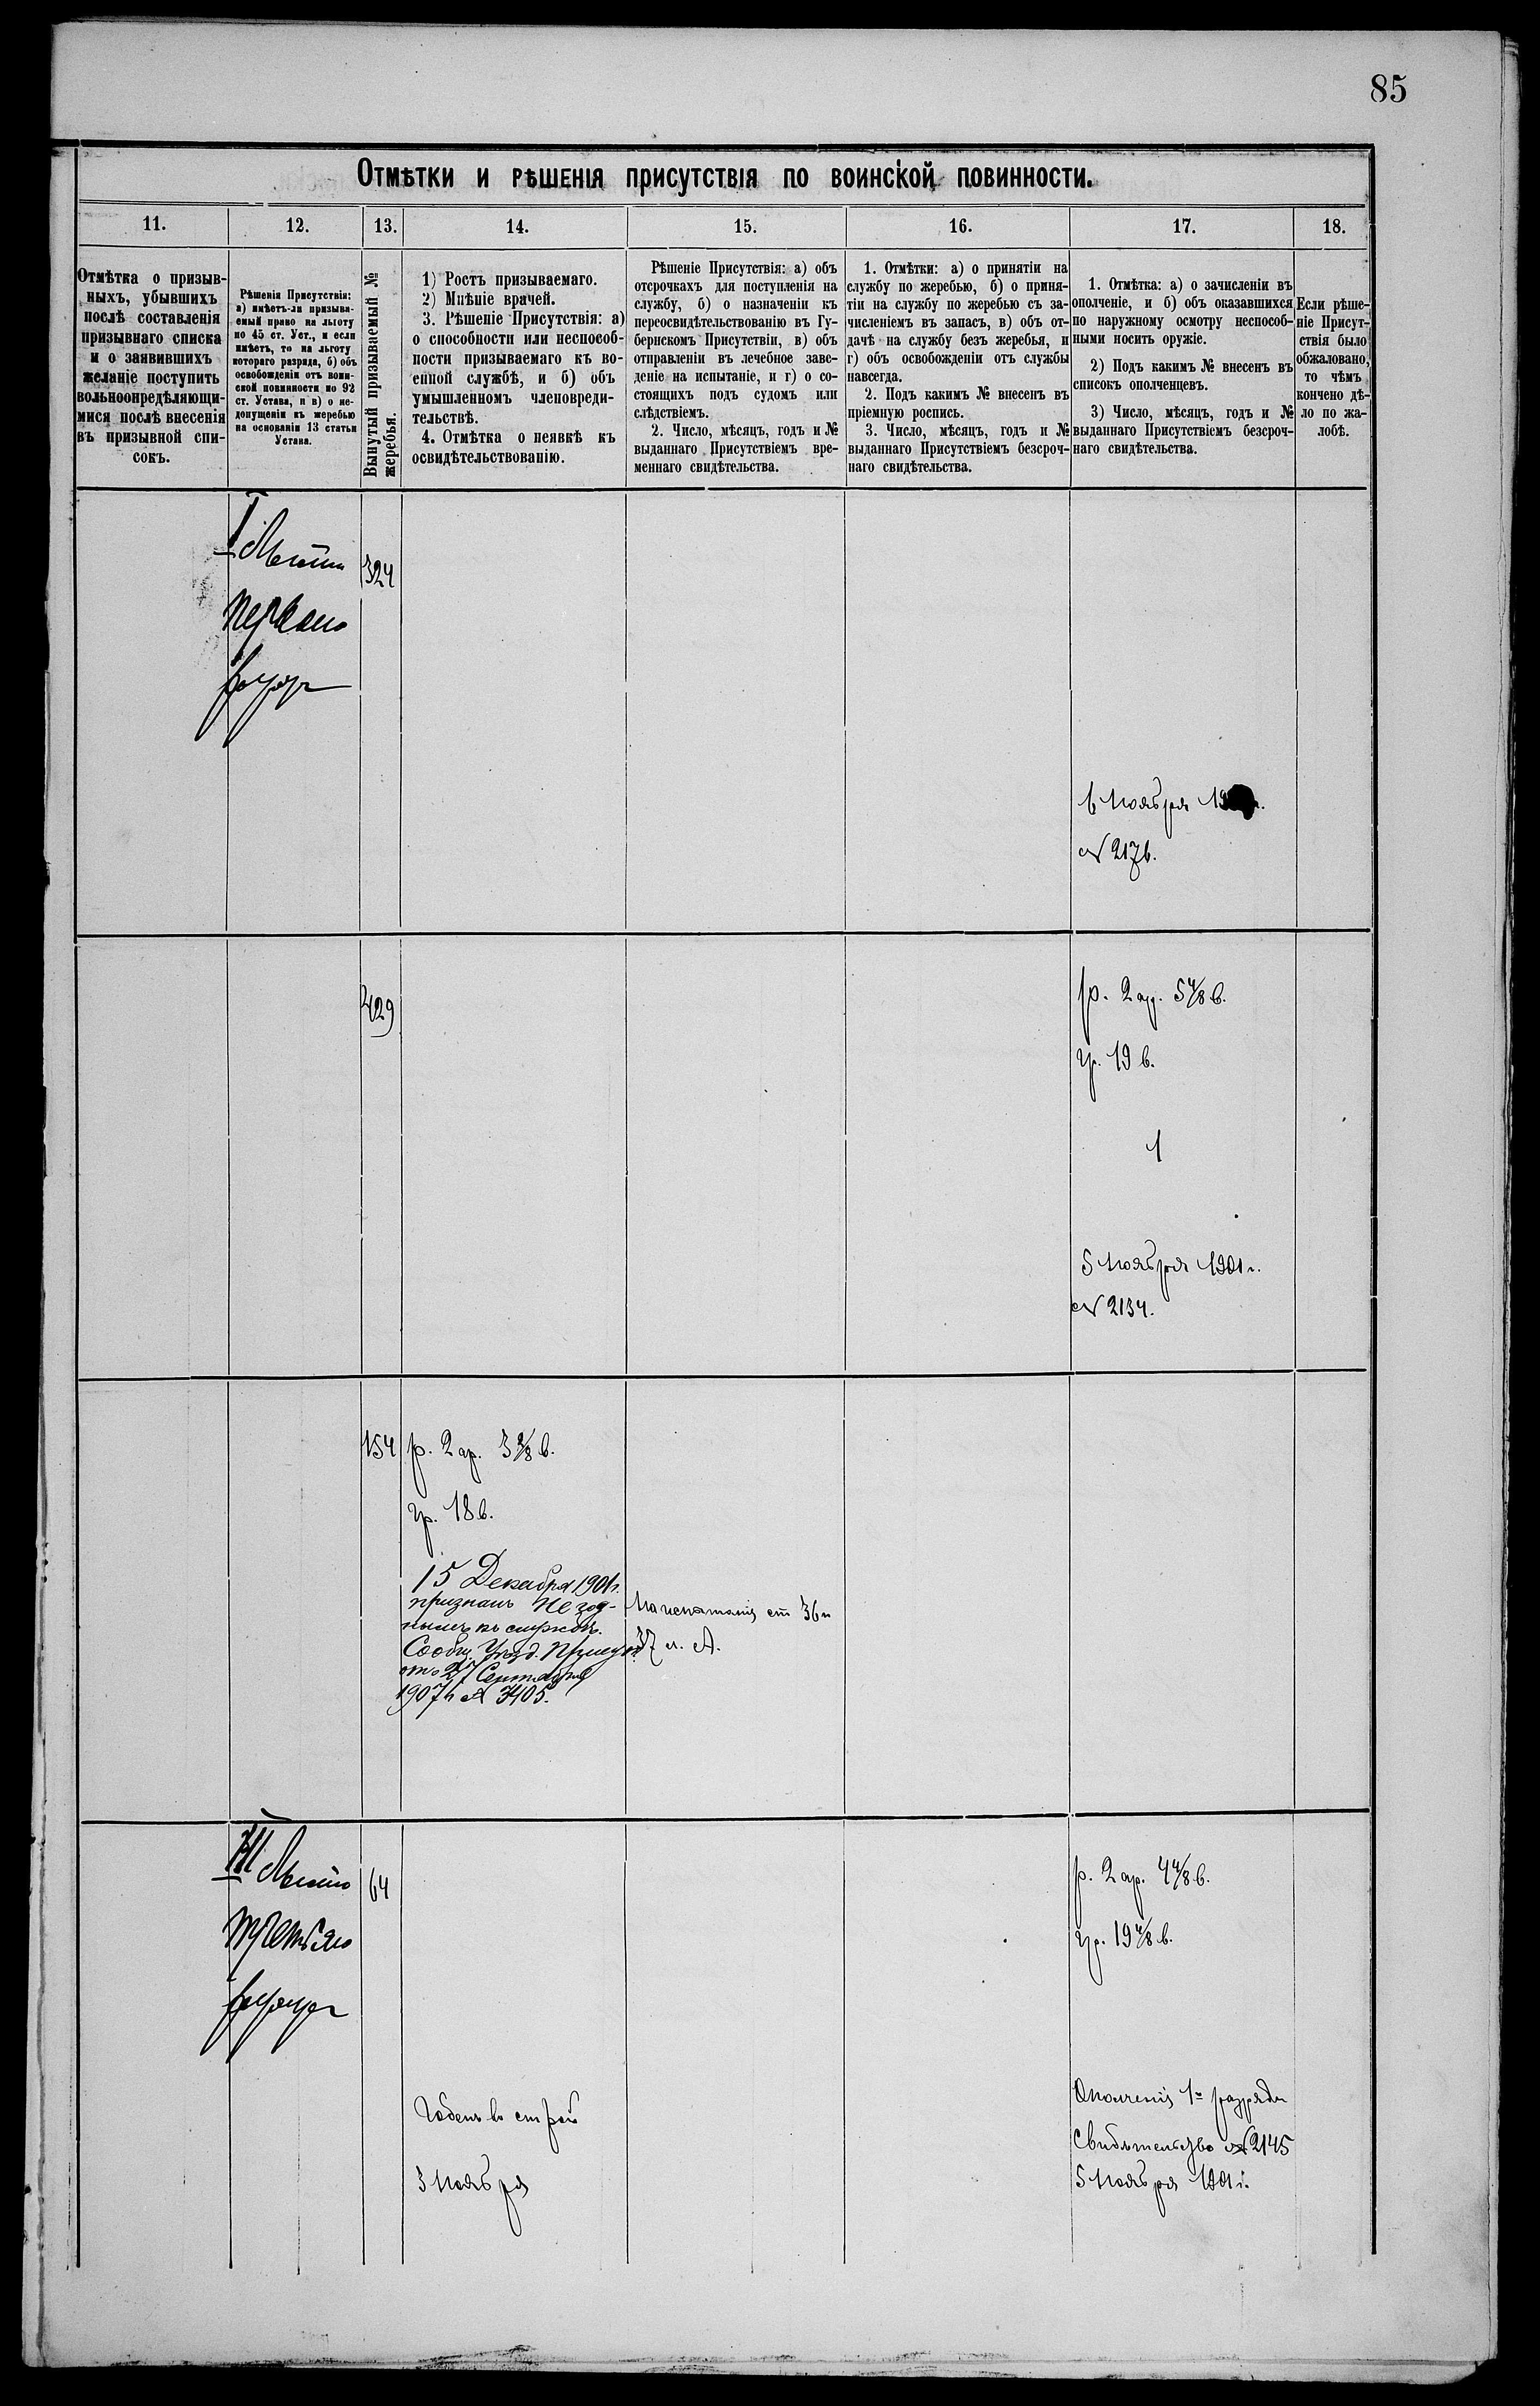 85
Отмѣтки и рѣшенія присутствія по воинской повинности.
11.
12.
13.
14.
15.
16.
17.
18.
Отмѣтка о призыв-
ныхъ, убывшихъ
послѣ составленія
призывнаго списка
и о заявившихъ
желаніе поступить
вольноопредѣляющи-
мися послѣ внесенія
въ призывной спи-
сокъ.
Рѣшенія Присутствія:
а) имѣетъ-ли призыва-
емый право на льготу
по 45 ст. Уст., и если
имѣетъ, то на льготу
котораго разряда, б) объ
освобожденіи отъ воин-
ской повинности по 92
ст. Устава, и в) о не-
допущеніи къ жеребью
на основаніи 13 статьи
Устава.
Вынутый призываемый №
жеребья.
1) Ростъ призываемаго.
2) Мнѣніе врачей.
3. Рѣшеніе Присутствія: а)
о способности или неспособ-
ности призываемаго къ во-
енной службѣ, и б) объ
умышленномъ членовреди-
тельствѣ.
4. Отмѣтка о неявкѣ къ
освидѣтельствованію.
Рѣшеніе Присутствія: а) объ
отсрочкахъ для поступленія на
службу, б) о назначеніи къ
переосвидѣтельствованію въ Гу-
бернскомъ Присутствіи, в) объ
отправленіи въ лечебное заве-
деніе на испытаніе, и г) о со-
стоящихъ подъ судомъ или
слѣдствіемъ.
2. Число, мѣсяцъ, годъ и №
выданнаго Присутствіемъ вре-
меннаго свидѣтельства.
1. Отмѣтки: а) о принятіи на
службу по жеребью, б) о приня-
тіи на службу по жеребью съ за-
численіемъ въ запасъ, в) объ от-
дачѣ на службу безъ жеребья, и
г) объ освобожденіи отъ службы
навсегда.
2. Подъ какимъ № внесенъ въ
пріемную роспись.
3. Число, мѣсяцъ, годъ и №
выданнаго Присутствіемъ безсроч-
наго свидѣтельства.
1. Отмѣтка: а) о зачисленіи въ
ополченіе, и б) объ оказавшихся
по наружному осмотру неспособ-
ными носить оружіе.
2) Подъ какимъ № внесенъ въ
списокъ ополченцевъ.
3) Число, мѣсяцъ, годъ и №
выданнаго Присутствіемъ безсроч-
наго свидѣтельства.
Если рѣше-
ніе Присут-
ствія было
обжаловано,
то чѣмъ
кончено дѣ-
ло по жа-
лобѣ.
I
324
перваго
6 Ноября 19
№ 2176.
429
р. 2 ар. 5 4/8 в.
гр. 19 в.
1
5 Ноября 1901 г.
№ 2134.
154
р. 2 ар. 3 2/8 в.
гр. 18 в.
15 Декабря 1901 г.
признанъ негод-
нымъ къ службѣ.
Сообщ. Уѣзд. Присут.
отъ 27 Сентября
1907 г. № 3405.
ст 36 и
37 л. А.
III
64
третьяго
р. 2 ар. 4 4/8 в.
гр. 19 4/8 в.
Годенъ въ строй
3 Ноября
Ополченія 1го разряда
Свидѣтельство № 2145
5 Ноября 1901 г.